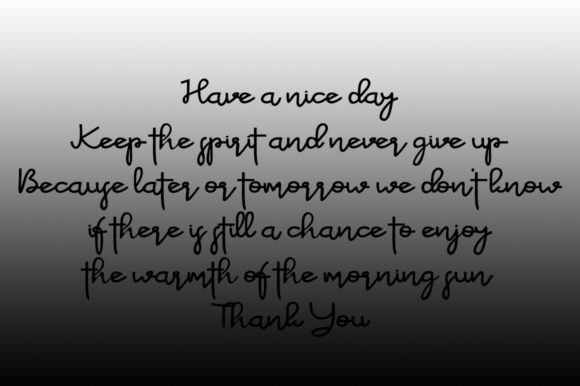 Have a nice day
Keep the spirit and never give up
Because later or tomorrow we don't know
if there is still a chance to enjoy
the warmth of the morning sun
Thank You